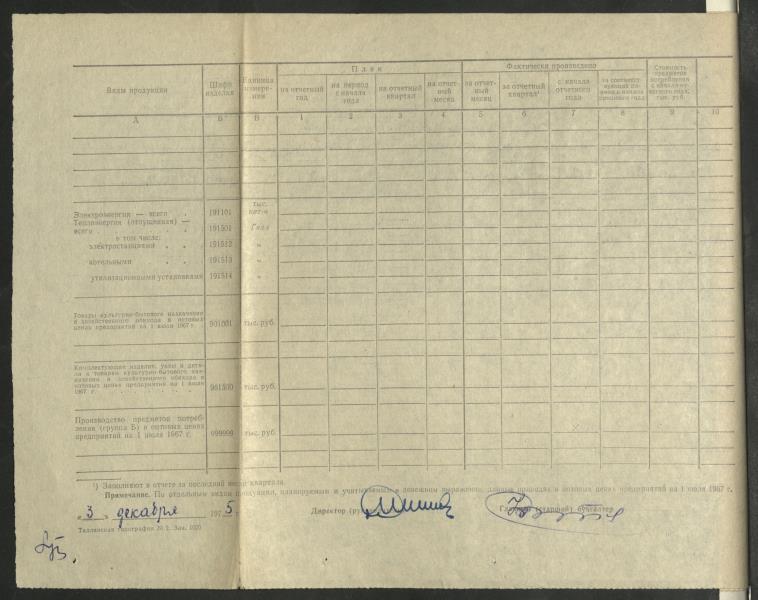 Виды продукции
Шифр изделия
Единица измерения
План
на отчетный год
на период с начала года
на отчетный квартал
на отчетный месяц
Фактически произведено
за отчетный месяц
за отчетный квартал¹
с начала отчетного года
за соответствующий период с начала прошлого года
Стоимость предметов потребления с начала отчетного года, тыс. руб.
А Б В 1 2 3 4 5 6 7 8 9 10
Электроэнергия — всего . 191101 тыс. квт-ч
Теплоэнергия (отпущенная) —
всего . . . . . . 191501 Гкал
в том числе:
электростанциями . . 191512 „
котельными . . 191513 „
утилизационными установками 191514 „
Товары культурно-бытового назначения
и хозяйственного обихода в оптовых
ценах предприятий на 1 июля 1967 г. 901001 тыс. руб.
Комплектующие изделия, узлы и дета-
ли к товарам культурно-бытового наз-
начения и хозяйственного обихода в
оптовых ценах предприятий на 1 июля
1967 г. тыс. руб.
Производство предметов потреб-
ления (группа Б) в оптовых ценах
предприятий на 1 июля 1967 г. 999999 тыс. руб.
¹) Заполняют в отчете за последний месяц квартала.
Примечание. По отдельным видам продукции, планируемым и учитываемым в денежном выражении, данные приводят в оптовых ценах предприятий на 1 июля 1967 г.
„3 декабря 1975
Директор
Главный (старший) бухгалтер
Таллинская типография № 2. Зак. 1020